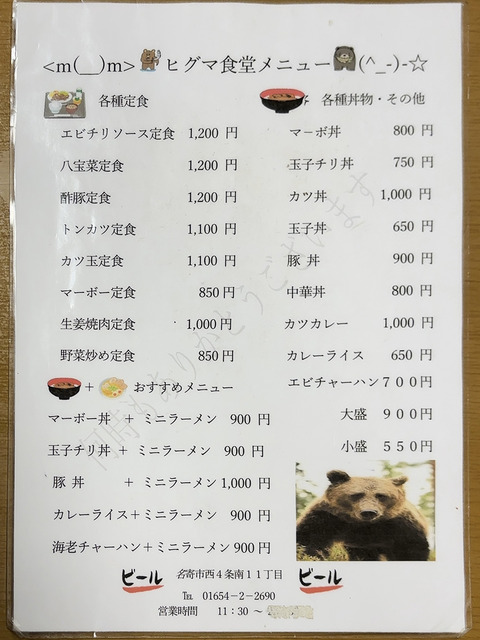 <m(__)m> ヒグマ食堂メニュー (^_-)-☆
各種定食
エビチリソース定食 1,200 円
八宝菜定食 1,200 円
酢豚定食 1,200 円
トンカツ定食 1,100 円
カツ玉定食 1,100 円
マーボー定食 850 円
生姜焼肉定食 1,000 円
野菜炒め定食 850 円
+ おすすめメニュー
マーボー丼 + ミニラーメン 900 円
玉子チリ丼 + ミニラーメン 900 円
豚 丼 + ミニラーメン 1,000 円
カレーライス+ミニラーメン 900 円
海老チャーハン+ミニラーメン 900 円
各種丼物・その他
マーボ丼 800 円
玉子チリ丼 750 円
カツ丼 1,000 円
玉子丼 650 円
豚 丼 900 円
中華丼 800 円
カツカレー 1,000 円
カレーライス 650 円
エビチャーハン 700 円
大盛 900円
小盛 550円
何時もありがとうございます
ビール 名寄市西4条南11丁目 ビール
℡ 01654-2-2690
営業時間 11:30 ~